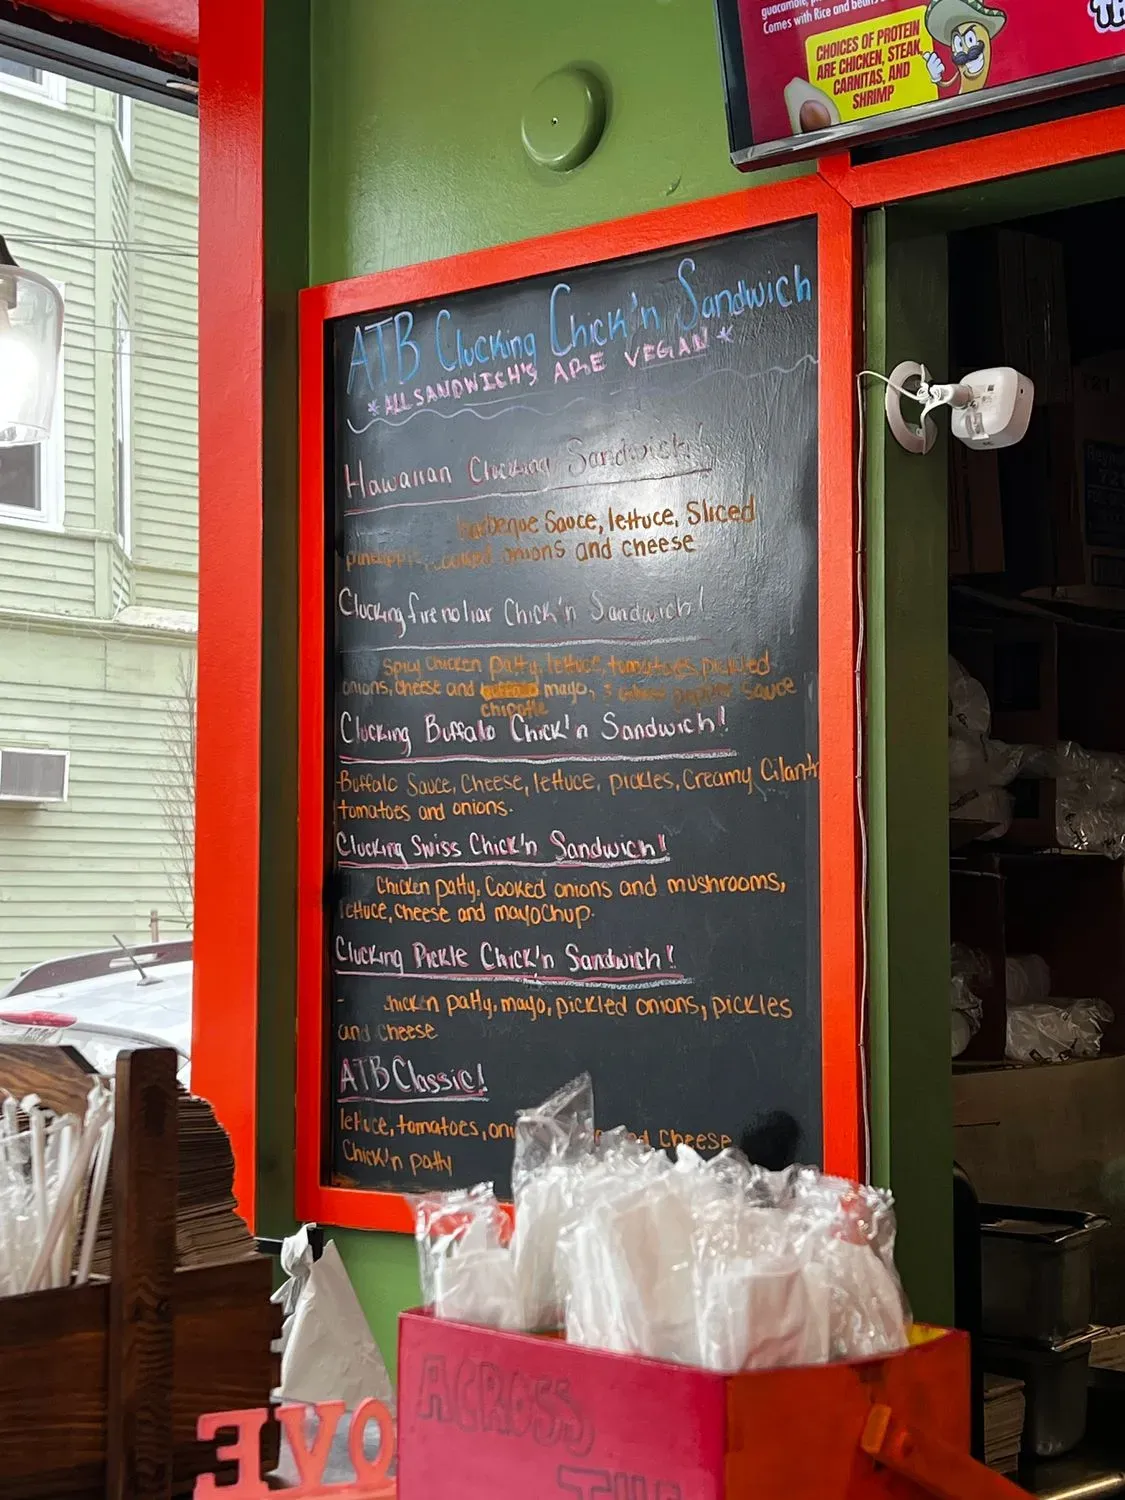 guacamole,
Comes with Rice and beans
CHOICES OF PROTEIN
ARE CHICKEN, STEAK,
CARNITAS, AND
SHRIMP
ATB Clucking Chick'n Sandwich
*ALL SANDWICH'S ARE VEGAN*
Hawaiian Clucking Sandwich!
barbeque Sauce, lettuce, Sliced
pineapple, cooked onions and cheese
Clucking fire no liar Chick'n Sandwich!
Spicy Chicken patty, lettuce, tomatoes, pickled
onions, cheese and buffalo mayo, sauce
chipotle
Clucking Buffalo Chick'n Sandwich!
Buffalo Sauce, Cheese, lettuce, pickles, Creamy Cilantr
tomatoes and onions.
Clucking Swiss Chick'n Sandwich!
Chicken patty, Cooked onions and mushrooms,
lettuce, cheese and mayochup.
Clucking Pickle Chick'n Sandwich!
- chicken patty, mayo, pickled onions, pickles
and cheese
ATB Classic!
lettuce, tomatoes, oni cheese
Chick'n patty
ACROSS
THE
LOVE